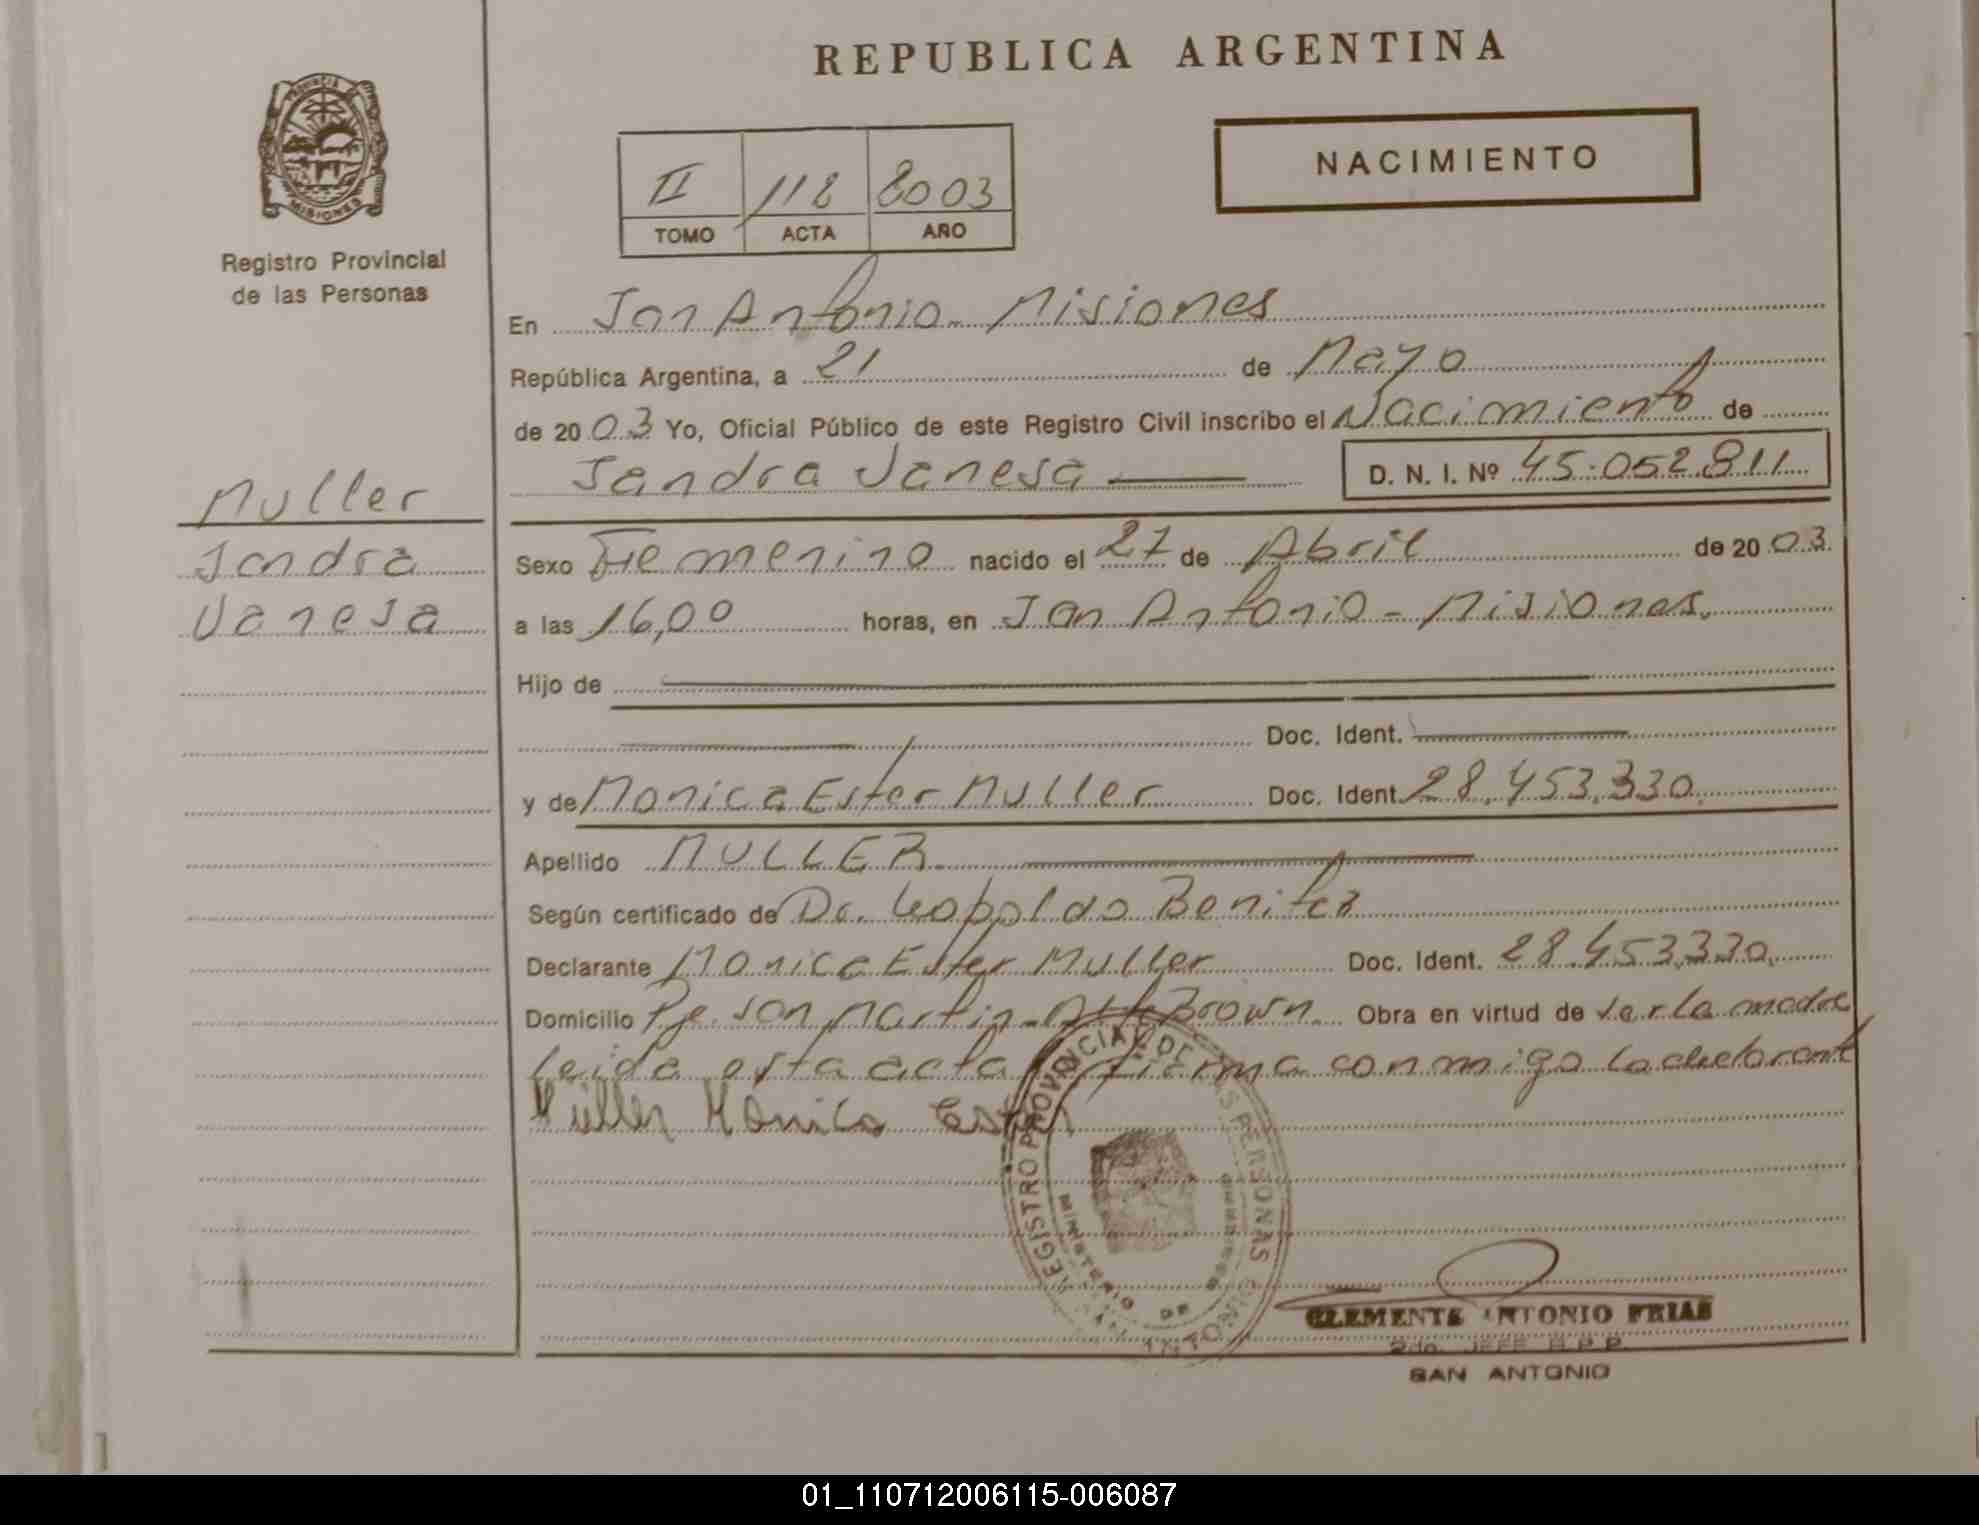 REPUBLICA ARGENTINA
PROVINCIA DE
MISIONES
Registro Provincial
de las Personas
NACIMIENTO
II 118 2003
TOMO ACTA AÑO
En San Antonio - Misiones
República Argentina, a 21 de Mayo
de 20 03 Yo, Oficial Público de este Registro Civil inscribo el Nacimiento de
Sandra Vanesa D. N. I. Nº 45.052.811
Muller
Sandra
Vanesa
Sexo Femenino nacido el 27 de Abril de 20 03
a las 16,00 horas, en San Antonio - Misiones.
Hijo de
Doc. Ident.
y de Monica Ester Muller Doc. Ident. 28.453.330.
Apellido MULLER
Según certificado de Dr. Leopoldo Benitez
Declarante Monica Ester Muller Doc. Ident. 28.453.330.
Domicilio Pje. San Martin - Alte Brown Obra en virtud de ser la madre
leida esta acta firma conmigo la declarante
Müller Monica Ester
REGISTRO PROVINCIAL DE LAS PERSONAS
MINISTERIO DE GOBIERNO
SAN ANTONIO
CLEMENTE ANTONIO FRIAS
2do. JEFE R.P.P.
SAN ANTONIO
01_110712006115-006087